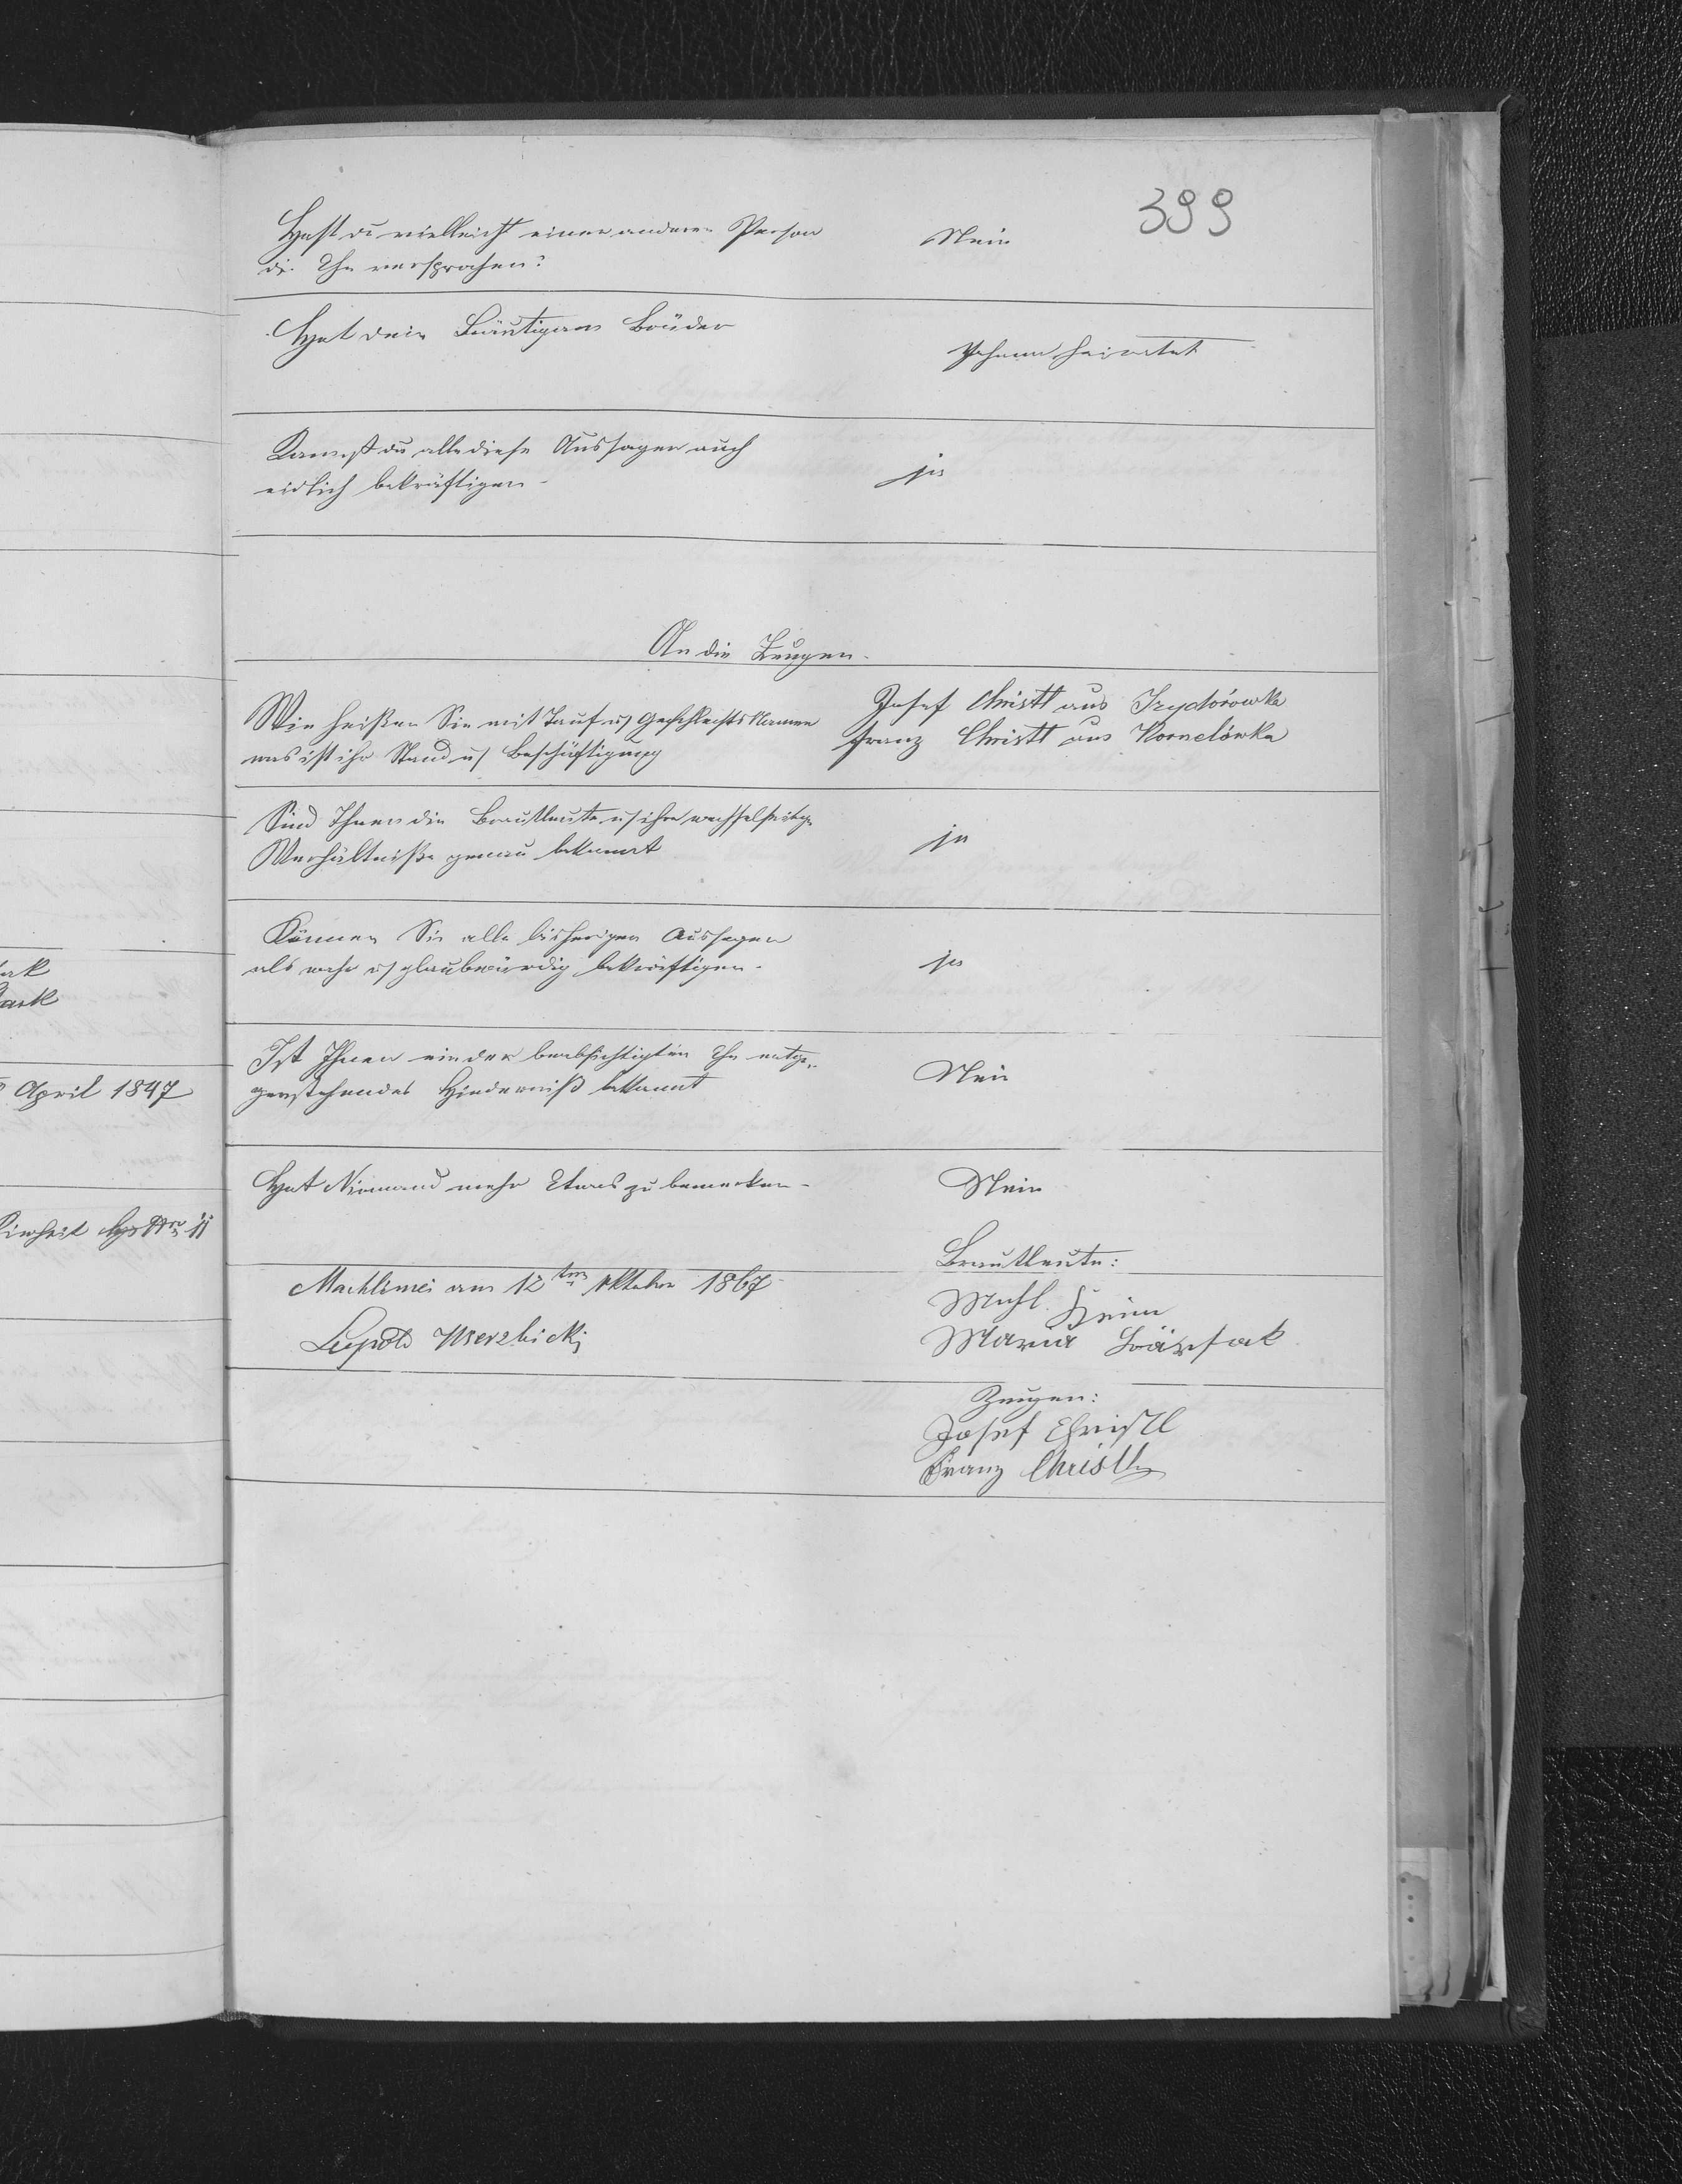 399
Hast du vielleicht einer anderen Person
die Ehe versprochen?
Nein
Hat dein Bräutigams Brüder
Johann heiratet
Kannst du alle diese Aussagen auch
eidlich bekräftigen -
ja
An die Zeugen -
Wie heißen Sie mit Tauf u. Geschlechts Namen
was ist ihr Stand u. Beschäftigung
Josef Christl aus Izydorówka
Franz Christl aus Kornelówka
Sind Ihnen die Brautleute u. ihre wechselseitige
Verhältniße genau bekannt
ja
Können Sie alle bisherigen Aussagen
als wahr u. glaubwürdig bekräftigen -
ja
ak
April 1847
Ist Ihnen ein der beabsichtigten Ehe entge„
genstehendes Hinderniß bekannt
Nein
Hat Niemand mehr Etwas zu bemerken -
Nein
Machliniec am 12ten Oktober 1867
Leopold Wierzbicki
Brautleute:
Heim
Maria
Zeugen:
Josef Christl
Franz Christl